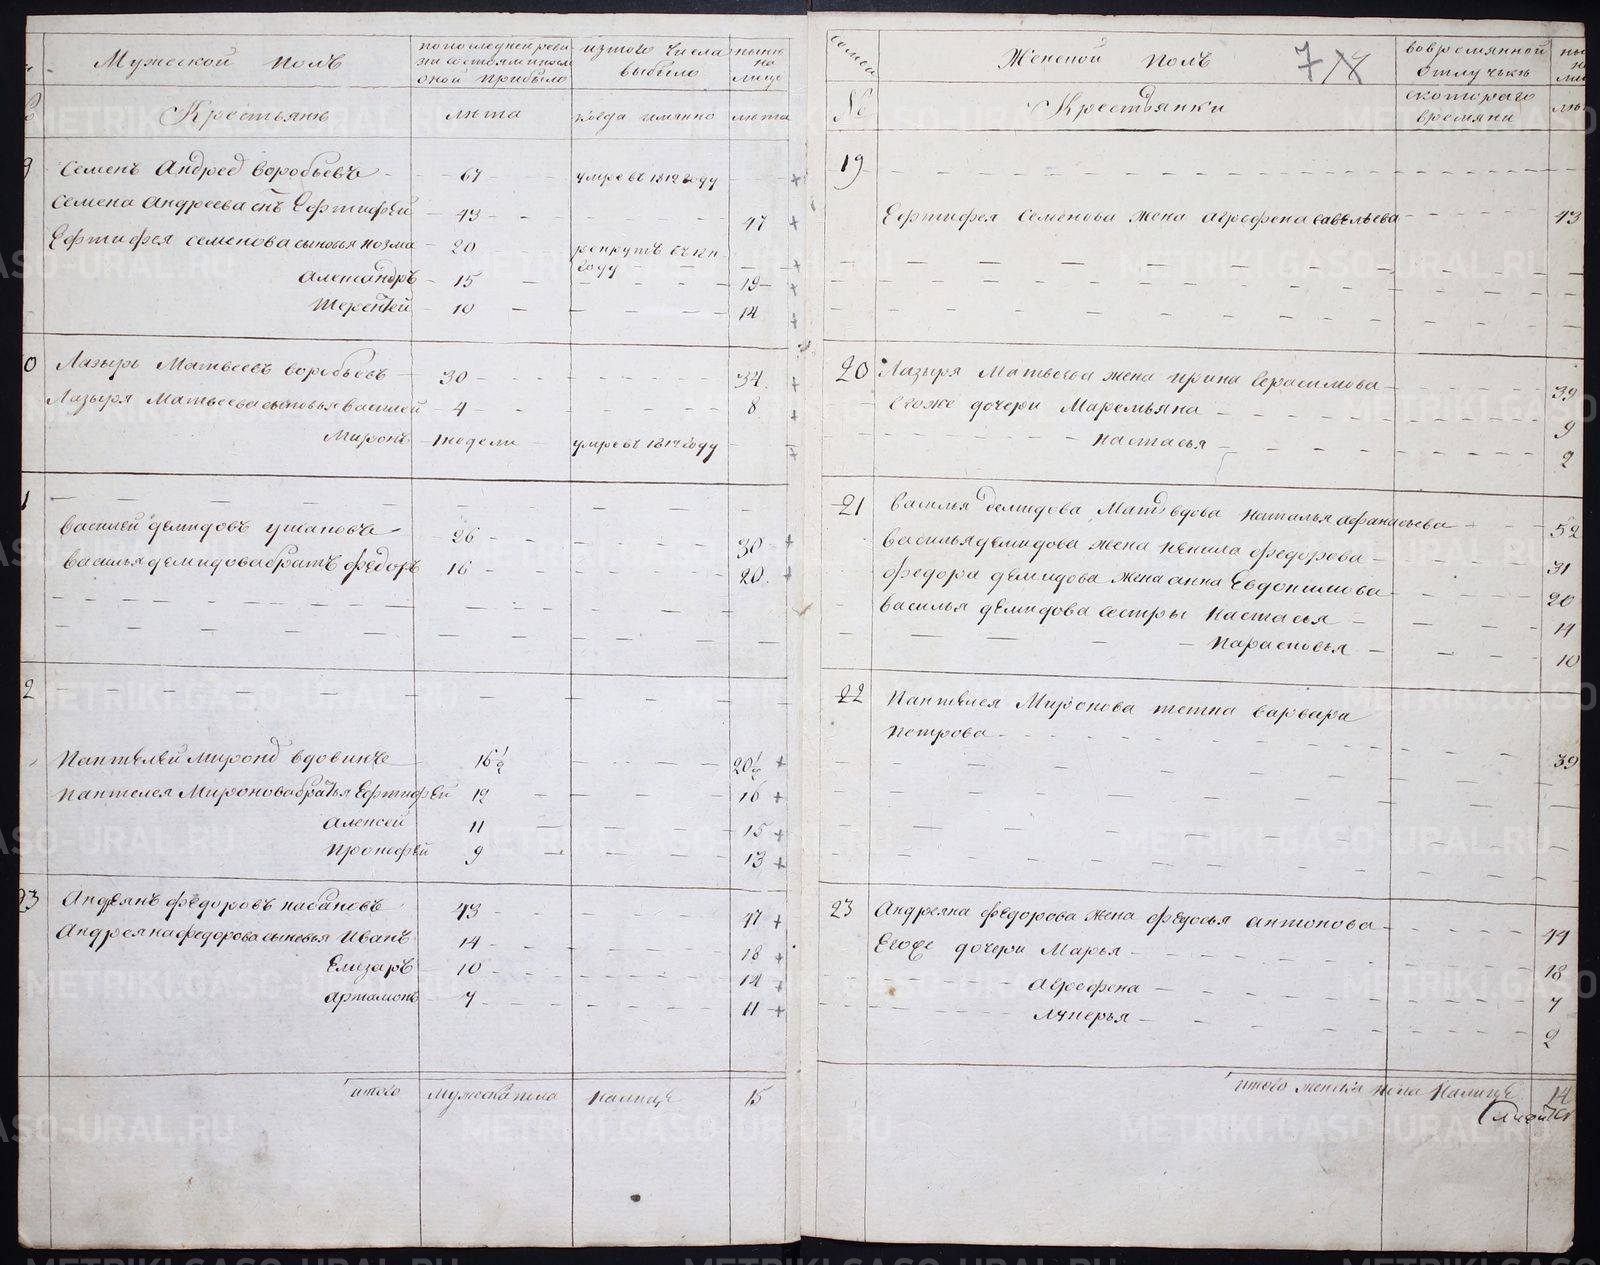 Мужеской полъ
по последней реви
зии состояло и после
оной прибыло
из того числа
выбыло
ныне
на
лицо
Крестьянъ
лѣта
когда имянно
лѣта
Семенъ Андреевъ Воробьевъ 67 умре въ 1812 году
Семена Андреева сынъ Ефтифей 43 47
Ефтифея Семенова сыновья Козма 20 рекрутъ въ 1812
году
Александръ 15 19
Терентей 10 14
Лазырь Матвеевъ Воробьевъ 30 34
Лазыря Матвеева сыновья Василей 4 8
Миронъ 1 недели умре въ 1814 году
Василей Демидовъ Ушаковъ 26 30
Василья Демидова братъ Федоръ 16 20
Пантѣлей Миронов Вдовинъ 16½ 20½
Пантелея Миронова братья Ефтифей 12 16
Алексей 11 15
Прокофей 9 13
23 Андреянъ Федоровъ Кабаковъ 43 47
Андреяна Федорова сыновья Иванъ 14 18
Елизаръ 10 14
Артамонъ 7 11
итого мужеска пола налице 15
семьи
Женской полъ
7
во временной
отлучьке
№
Крестьянки
с котораго
времяни
19
Ефтифея Семенова жена Агрофена Савельева 43
20 Лазыря Матвеева жена Ирина Герасимова 39
Егоже дочери Маремьяна 9
Настасья 2
21 Василья Демидова мать вдова Наталья Афанасьева 52
Василья Демидова жена Ненила Федорова 31
Федора Демидова жена Анна Евдокимова 20
Василья Демидова сестры Настасья 14
Парасковья 10
22 Пантѣлея Миронова тетка Варвара
Петрова 39
23 Андреяна Федорова жена Федосья Антонова 44
Егоже дочери Марья 18
Агрофена 7
Лукерья 2
итого женска пола налице 14
METRIKI.GASO-URAL.RU